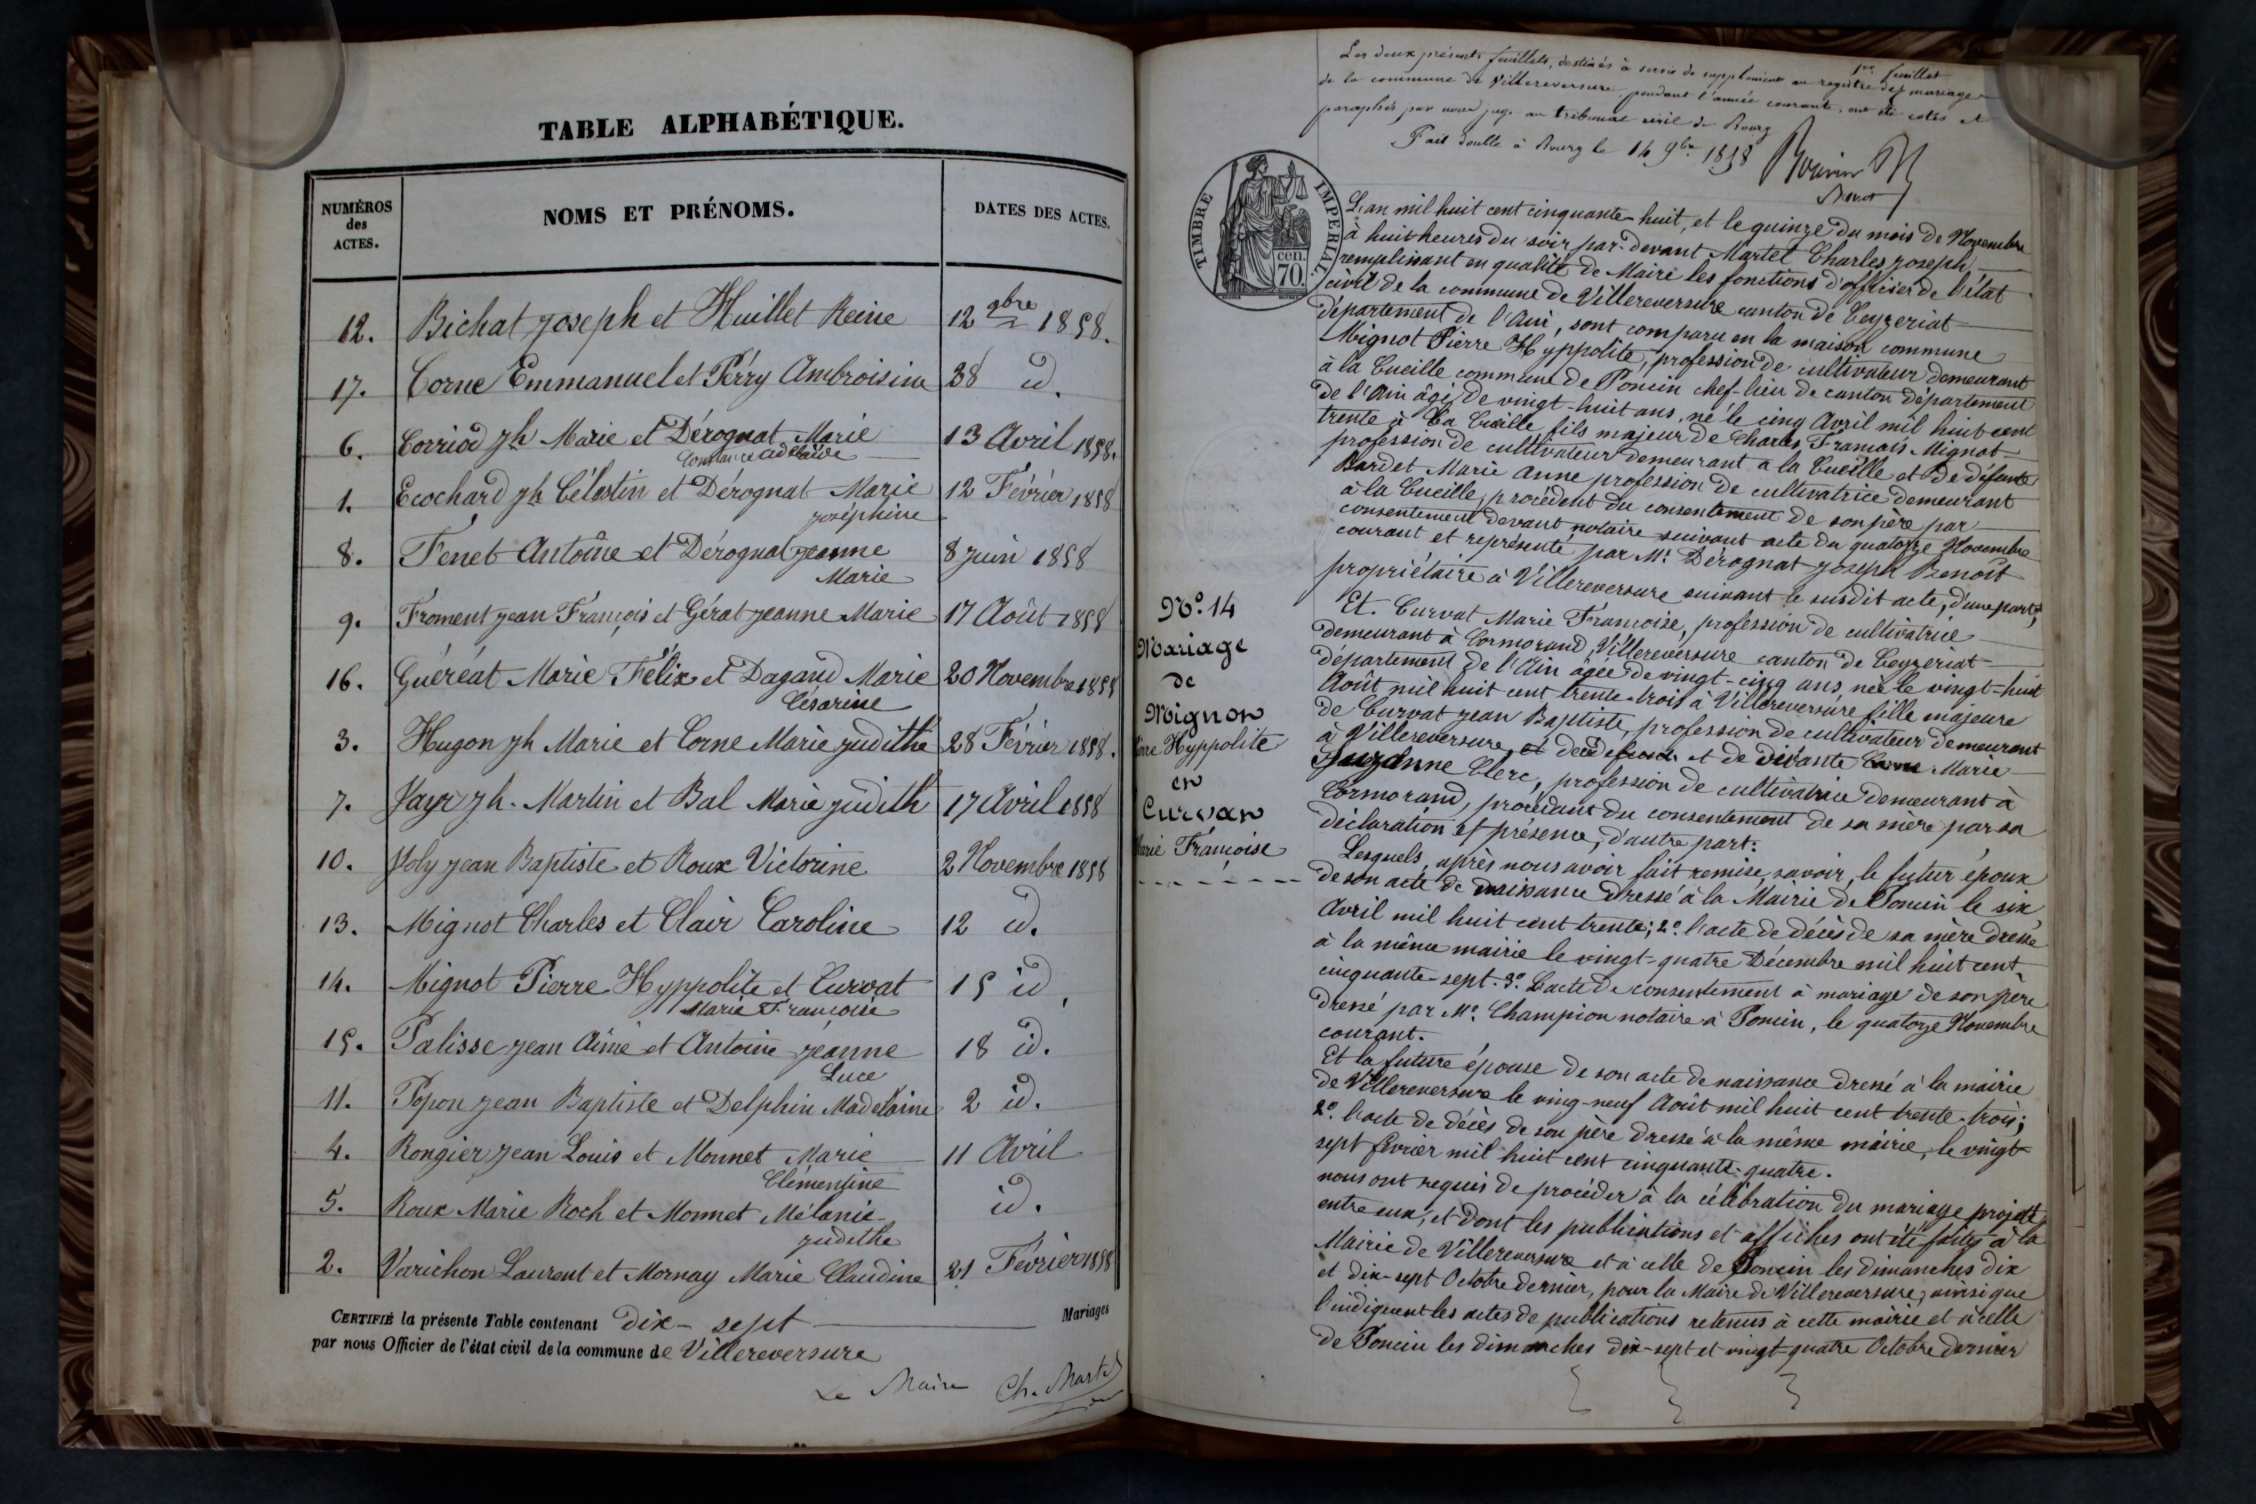 TABLE ALPHABÉTIQUE.
NUMÉROS des ACTES.
NOMS ET PRÉNOMS.
DATES DES ACTES.
12. Bichat Joseph et Huillet Reine 12 9bre 1858.
17. Corne Emmanuel et Perry Ambroisine 28 id.
6. Corriod Jh Marie et Dérognat Marie 13 Avril 1858.
Constance Adélaïde
1. Ecochard Jh Célestin et Dérognat Marie 12 Février 1858
Joséphine
8. Fenet Antoine et Dérognat Jeanne 8 Juin 1858
Marie
9. Froment Jean François et Gérat Jeanne Marie 17 Août 1858
16. Guéréat Marie Félix et Dagand Marie 20 Novembre 1858
Césarine
3. Hugon Jh Marie et Corne Marie Judithe 28 Février 1858.
7. Jayr Jh. Martin et Bal Marie Judith 17 Avril 1858
10. Joly Jean Baptiste et Roux Victorine 2 Novembre 1858
13. Mignot Charles et Clair Caroline 12 id.
14. Mignot Pierre Hyppolite et Curvat 15 id.
Marie Françoise
15. Palisse Jean Aimé et Antoine Jeanne 18 id.
Luce
11. Popon Jean Baptiste et Delphin Madelaine 2 id.
4. Rongier Jean Louis et Monnet Marie 11 Avril
Clémentine
5. Roux Marie Roch et Monnet Mélanie id.
Judithe
2. Varichon Laurent et Mornay Marie Claudine 21 Février 1858
CERTIFIÉ la présente Table contenant dix-sept Mariages
par nous Officier de l'état civil de la commune de Villereversure
Le Maire Ch. Martel
1er feuillet
Les deux présents feuillets, destinés à servir de supplément au registre des mariages
de la commune de Villereversure, pendant l'année courante, ont été cotés et
paraphés par nous juge au tribunal civil de Bourg
Fait double à Bourg le 14 9bre 1858
TIMBRE IMPÉRIAL.
70 cen.
L'an mil huit cent cinquante-huit, et le quinze du mois de Novembre
à huit heures du soir par-devant Martel Charles Joseph
remplissant en qualité de Maire les fonctions d'officier de l'état
civil de la commune de Villereversure canton de Ceyzeriat
département de l'Ain, sont comparu en la maison commune
Mignot Pierre Hyppolite, profession de cultivateur demeurant
à la Cueille commune de Poncin chef-lieu de canton département
de l'Ain âgé de vingt-huit ans, né le cinq Avril mil huit cent
trente à la Cueille fils majeur de Charles François Mignot
profession de cultivateur demeurant à la Cueille et de défunte
Bardet Marie Anne profession de cultivatrice demeurant
à la Cueille, procédent du consentement de son père par
consentement devant notaire suivant acte du quatorze Novembre
courant et représenté par Mr. Dérognat Joseph Benoît
propriétaire à Villereversure suivant le susdit acte, d'une part;
N°. 14
Mariage
de
Mignon
Pierre Hyppolite
en
Curvan
Marie Françoise
Et. Curvat Marie Françoise, profession de cultivatrice
demeurant à Cormorand, Villereversure canton de Ceyzeriat
département de l'Ain âgée de vingt-cinq ans, née le vingt-huit
Août mil huit cent trente-trois à Villereversure fille majeure
de Curvat Jean Baptiste, profession de cultivateur demeurant
à Villereversure, et de vivante Marie
Suzanne Clerc, profession de cultivatrice demeurant à
Cormorand, procédant du consentement de sa mère par sa
déclaration et présence, d'autre part.
Lesquels, après nous avoir fait remise, savoir, le futur époux
de son acte de naissance dressé à la Mairie de Poncin le six
Avril mil huit cent trente; 2° l'acte de décès de sa mère dressé
à la même mairie le vingt-quatre Décembre mil huit cent
cinquante-sept. 3° L'acte de consentement à mariage de son père
dressé par Me. Champion notaire à Poncin, le quatorze Novembre
courant.
Et la future épouse de son acte de naissance dressé à la mairie
de Villereversure le ving-neuf Août mil huit cent trente-trois;
2° l'acte de décès de son père dressé à la même mairie, le vingt
sept février mil huit cent cinquante-quatre.
nous ont requis de procéder à la célébration du mariage projeté
entre eux, et dont les publications et affiches ont été faites à la
Mairie de Villereversure et à celle de Poncin les dimanches dix
et dix-sept Octobre dernier, pour la Maire de Villereversure, ainsi que
l'indiquent les actes de publications retenus à cette mairie et à celle
de Poncin les dimanches dix-sept et vingt-quatre Octobre dernier